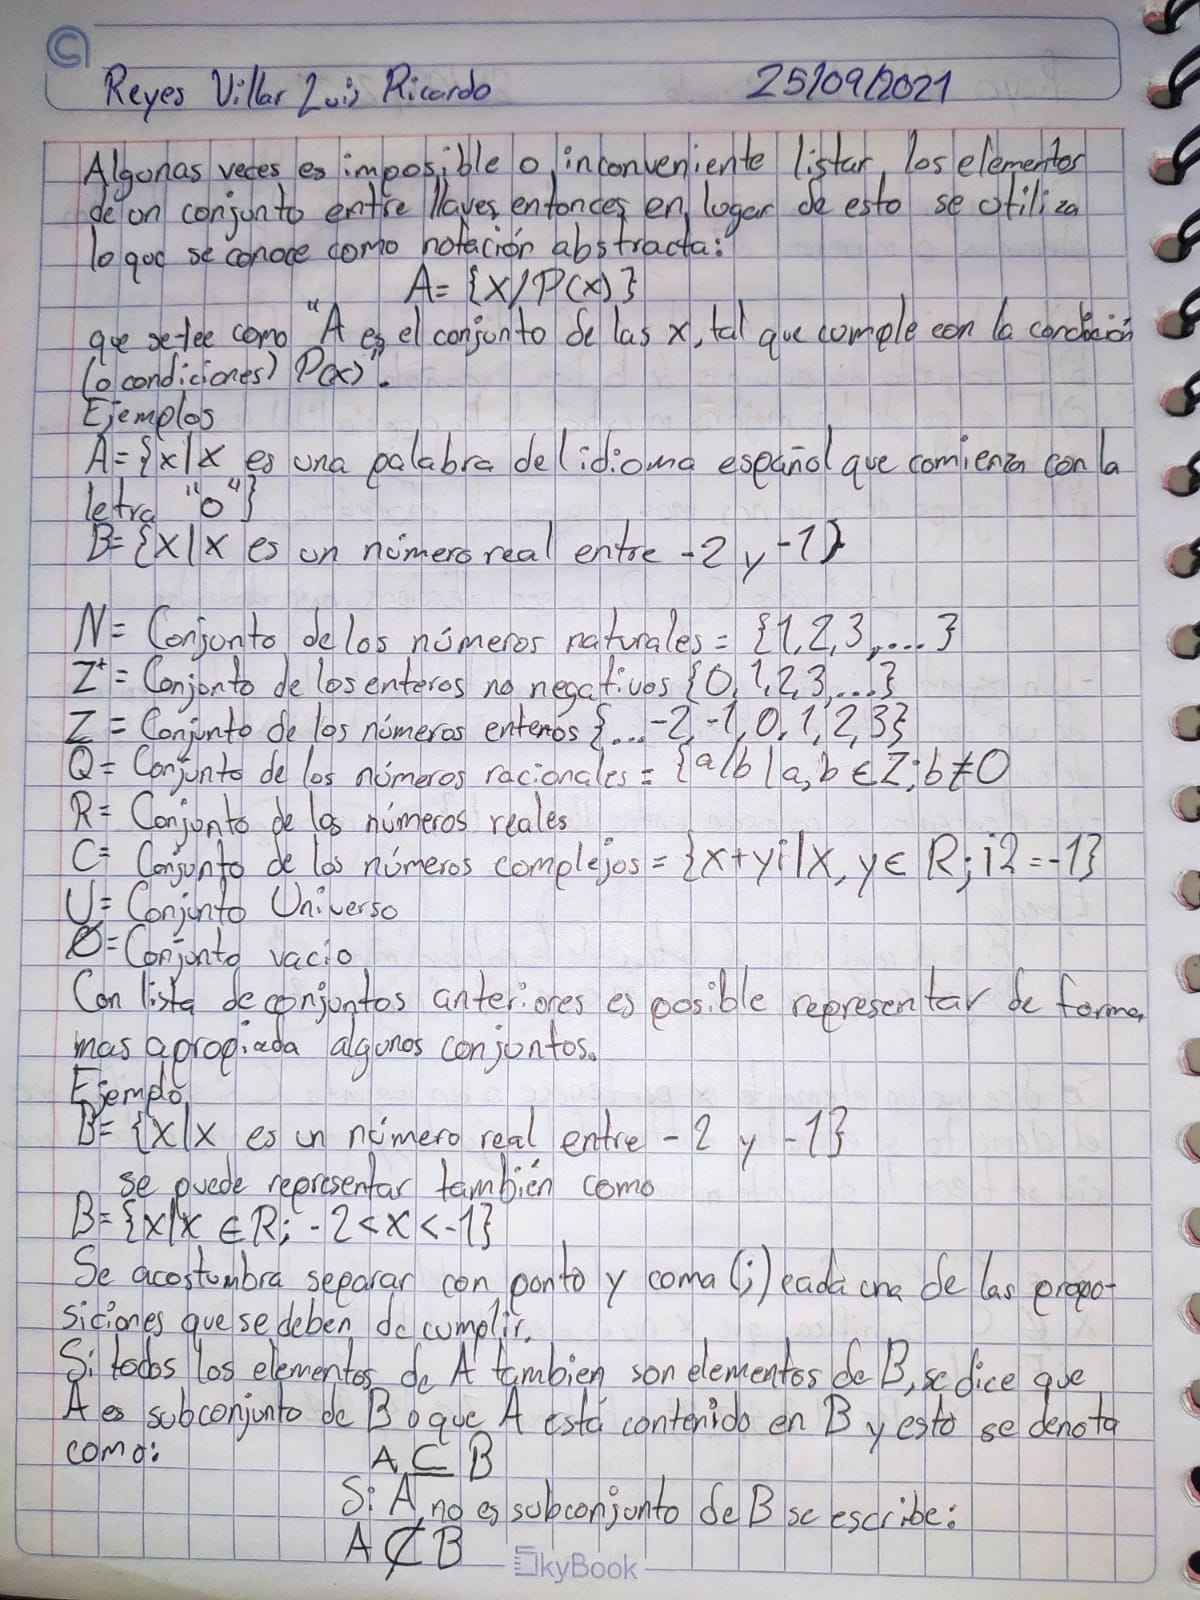 Reyes Villar Luis Ricardo 25/09/2021
Algunas veces es imposible o inconveniente listar los elementos
de un conjunto entre llaves, entonces en lugar de esto se utiliza
lo que se conoce como notación abstracta:
A= {X/P(x)}
que se lee como "A es el conjunto de las x, tal que cumple con la condición
(o condiciones) P(x)".
Ejemplos
A={x|x es una palabra del idioma español que comienza con la
letra "o"}
B= {X|X es un número real entre -2 y -1}
N= Conjunto de los números naturales= {1,2,3,....}
Z⁺= Conjunto de los enteros no negativos {0,1,2,3,...}
Z = Conjunto de los números enteros {... -2,-1,0,1,2,3}
Q= Conjunto de los números racionales= {a/b|a,b∈Z;b≠0
R= Conjunto de los números reales
C= Conjunto de los números complejos= {x+yi|x,y∈ R;i2=-1}
U= Conjunto Universo
Ø=Conjunto vacio
Con lista de conjuntos anteriores es posible representar de forma
mas apropiada algunos conjuntos.
Ejemplo
B= {X|x es un número real entre -2 y -1}
se puede representar también como
B={x|x ∈R; -2<x<-1}
Se acostumbra separar con punto y coma (;) cada una de las propo-
siciones que se deben de cumplir.
Si todos los elementos de A tambien son elementos de B, se dice que
A es subconjunto de B o que A está contenido en B y esto se denota
como:
A ⊆ B
Si A no es subconjunto de B se escribe:
A ⊄ B
SkyBook